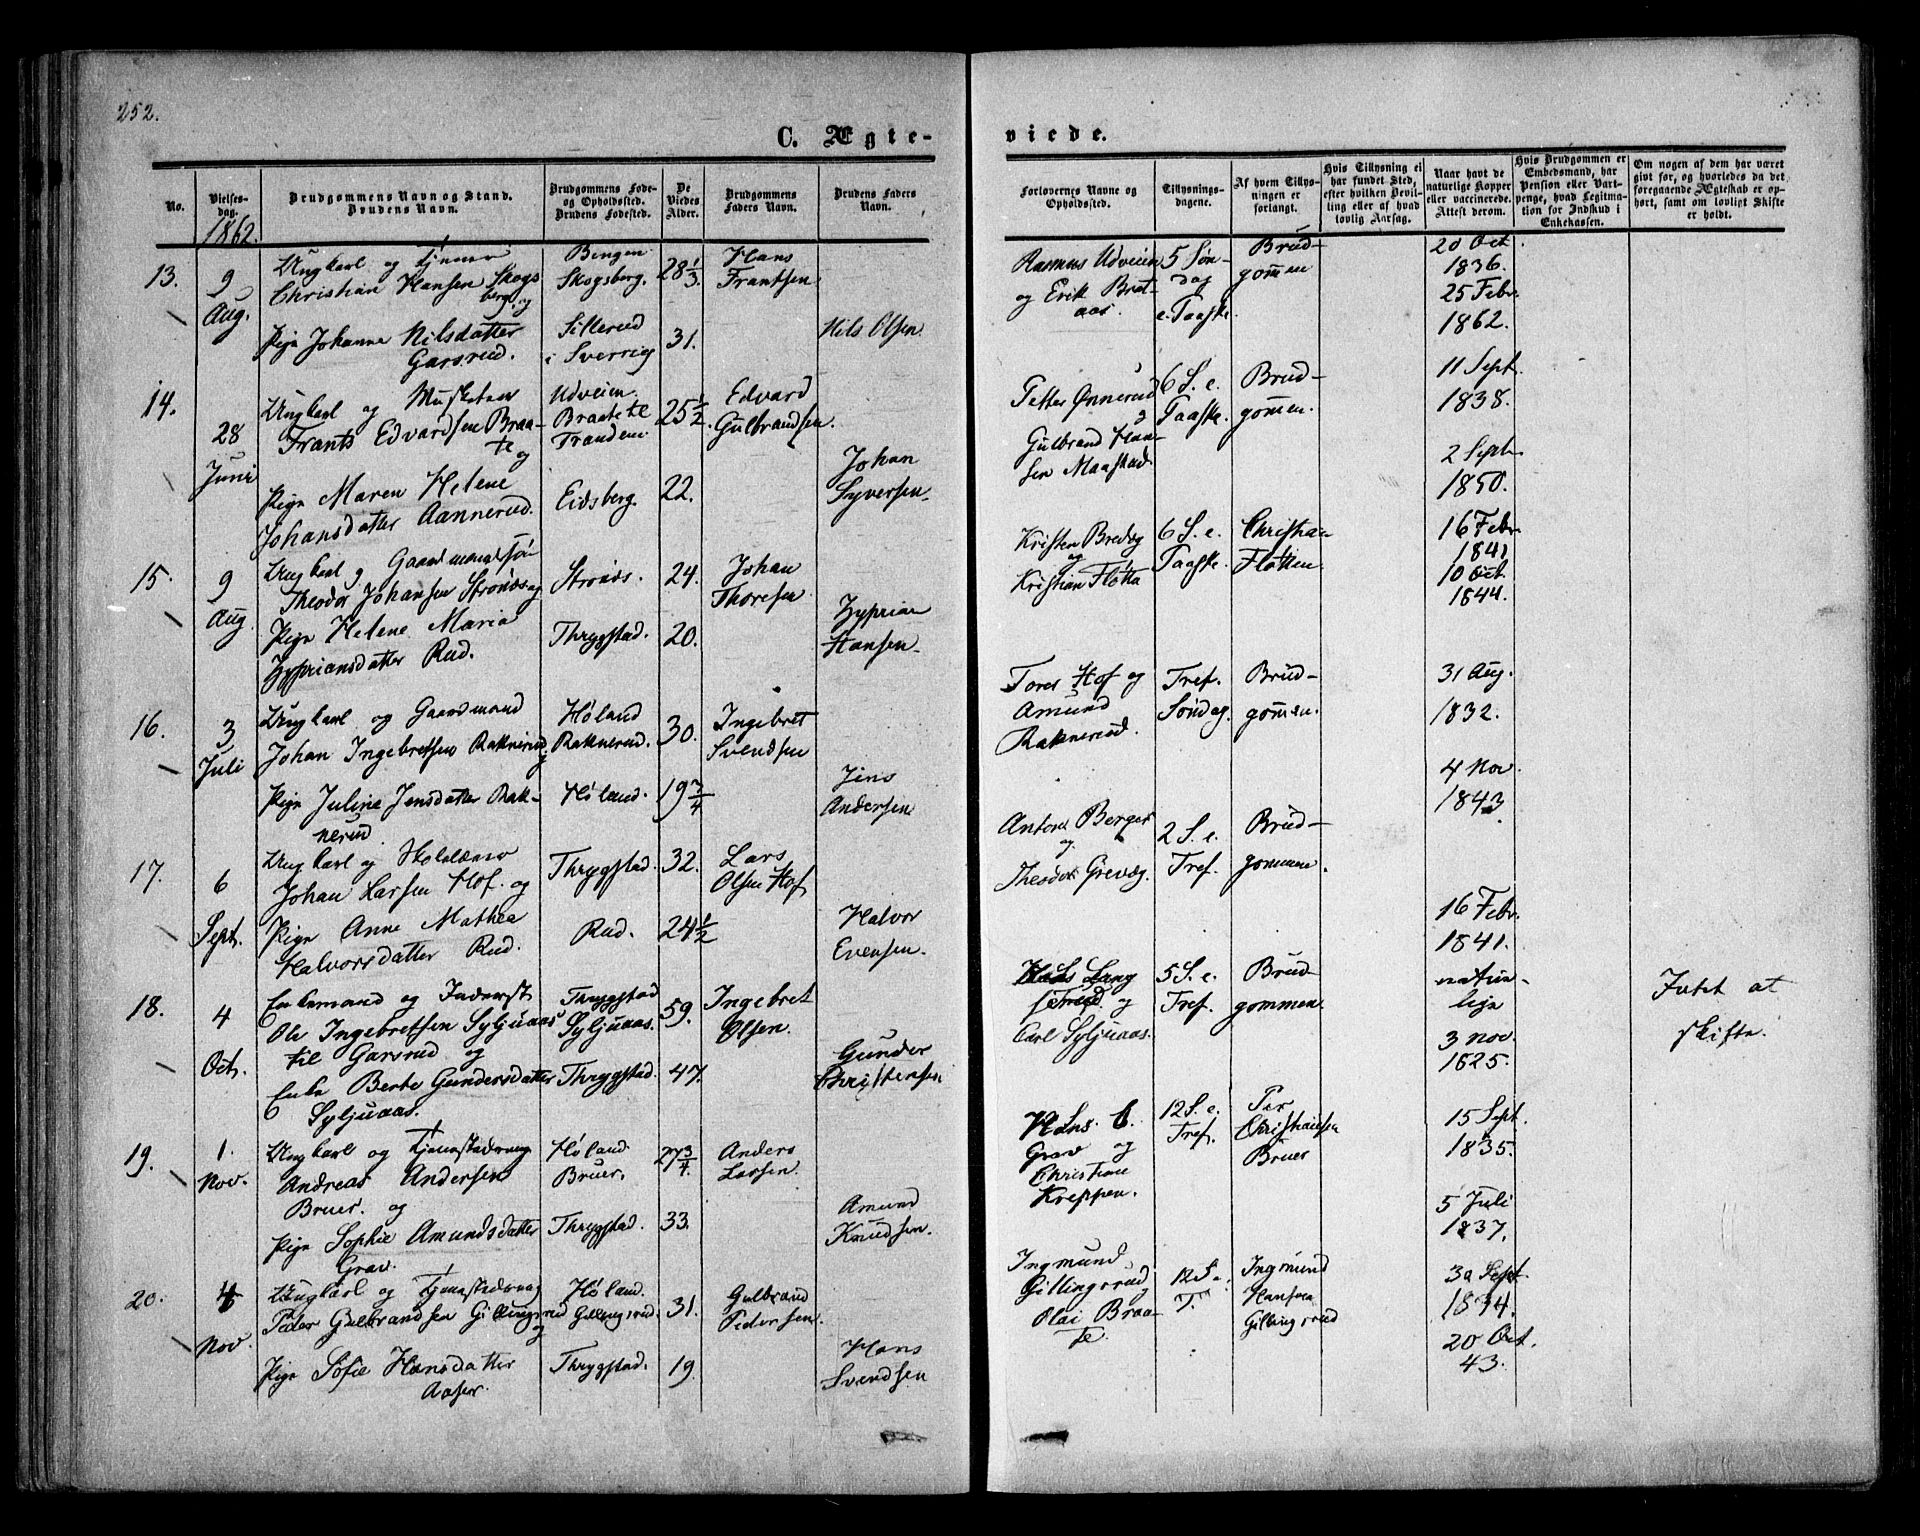 252.
C. Ægte-
viede.
No.
Vielses-
dag.
1862.
Brudgommens Navn og Stand.
Brudens Navn.
Brudgommens Føde-
og Opholdssted.
Brudens Fødested.
De
Viedes
Alder.
Brudgommens
Faders Navn.
Brudens Faders
Navn.
Forlovernes Navne og
Opholdssted.
Tillysnings-
dagene.
Af hvem Tillys-
ningen er
forlangt.
Hvis Tillysning ei
har fundet Sted,
efter hvilken Bevil-
ling eller af hvad
lovlig Aarsag.
Naar havt de
naturlige Kopper
eller vaccinerede.
Attest derom.
Hvis Brudgommen er
Embedsmand, har
Pension eller Vart-
penge, hvad Legitima-
tion for Indskud i
Enkekassen.
Om nogen af dem har været
givt for, og hvorledes da det
foregaaende Ægteskab er op-
hørt, samt om lovligt Skifte
er holdt.
13.
9
Aug.
Ungkarl og
Christian Hansen Skogs
berg, og
Pige Johanne Nilsdatter
Garsrud.
Bingen
Skogsberg.
Sillerud
i Sverrig
28 1/3
31.
Hans
Frantsen
Nils Olsen
Rasmus Udveien
og Erik Brat-
aas.
5 Søn-
dag
e. Paaske.
Brud-
gommen
20 Oct.
1836.
25 Febr.
1862.
14.
28
Juni
Ungkarl og Musketeer
Frants Edvardsen Braa-
te og
Pige Maren Helene
Johansdatter Aannerud.
Udveien
Braate
Eidsberg.
25 1/2
22.
Edvard
Gulbrandsen.
Johan
Syversen
Petter Ønnerud
og
Gulbrand Han-
sen Maastad
6 S. e.
Paaske.
Brud-
gommen.
11 Sept.
1838.
2 Sept.
1850.
15.
9
Aug.
Ungkarl og Gaardmandssøn
Theodor Johansen Strønæs og
Pige Helene Maria
Zypriansdatter Rud.
Strønæs.
Thrygstad.
24.
20.
Johan
Thoresen
Zyprian
Hansen
Kristen Bredeg
og
Kristian Fløtta
6 S. e.
Paaske.
Christian
Fløtten
16 Febr.
1841
10 Oct.
1844.
16.
3
Juli
Ungkarl og Gaardmand
Johan Ingebretsen Raknerud
Pige Juline Jensdatter Rak-
nerud.
Høland
Raknerud.
Høland.
30.
19 3/4
Ingebret
Svendsen
Jens
Andersen
Tores Hof og
Amund
Raknerud.
Tref.
Søndag.
Brud-
gommen.
31 Aug.
1832.
4 Nov.
1843
17.
6
Sept.
Ungkarl og Skolelærer
Johan Larsen Hof. og
Pige Anne Mathea
Halvorsdatter Rud.
Thrygstad.
Rud.
32.
24 1/2
Lars
Olsen Hof
Halvor
Evensen.
Anton Berger
og
Theodor Grevæg.
2 S. e.
Tref.
Brud-
gommen.
16 Febr.
1841.
18.
4
Oct.
Enkemand og Inderst
Ole Ingebretsen Syljuaas
til Garsrud og
Enke Berte Gundersdatter
Syljuaas.
Thrygstad
Syljuaas.
Thrygstad.
59.
47.
Ingebret
Olsen.
Gunder
Christensen
Lang
sætred. og
Carl Syljuaas.
5 S. e.
Tref.
Brud
gommen.
natur-
lige
3 Nov.
1825.
Intet at
skifte.
19.
1.
Nov.
Ungkarl og Tjenestedreng
Andreas Andersen
Bruer. og
Pige Sophie Amundsdatter
Grav.
Høland
Bruer.
Thrygstad.
27 3/4
33.
Anders
Larsen.
Amund
Knudsen.
Hans C.
Grav og
Christian
Kreppen.
12 S. e.
Tref.
Per
Christiansen
Bruer
15 Sept.
1835.
5 Juli
1837.
20.
4
Nov.
Ungkarl og Tjenestedreng
Peder Gulbrandsen Gillingsrud
og
Pige Sofie Hansdatter
Aaser.
Høland.
Gillingsrud.
Thrygstad.
31.
19
Gulbrand
Pedersen.
Hans
Svendsen
Ingmund
Gillingsrud
Olai Braa-
te.
12 S. e.
T.
Ingmund
Hansen
Gillingsrud
30 Sept
1834.
20 Oct.
43.